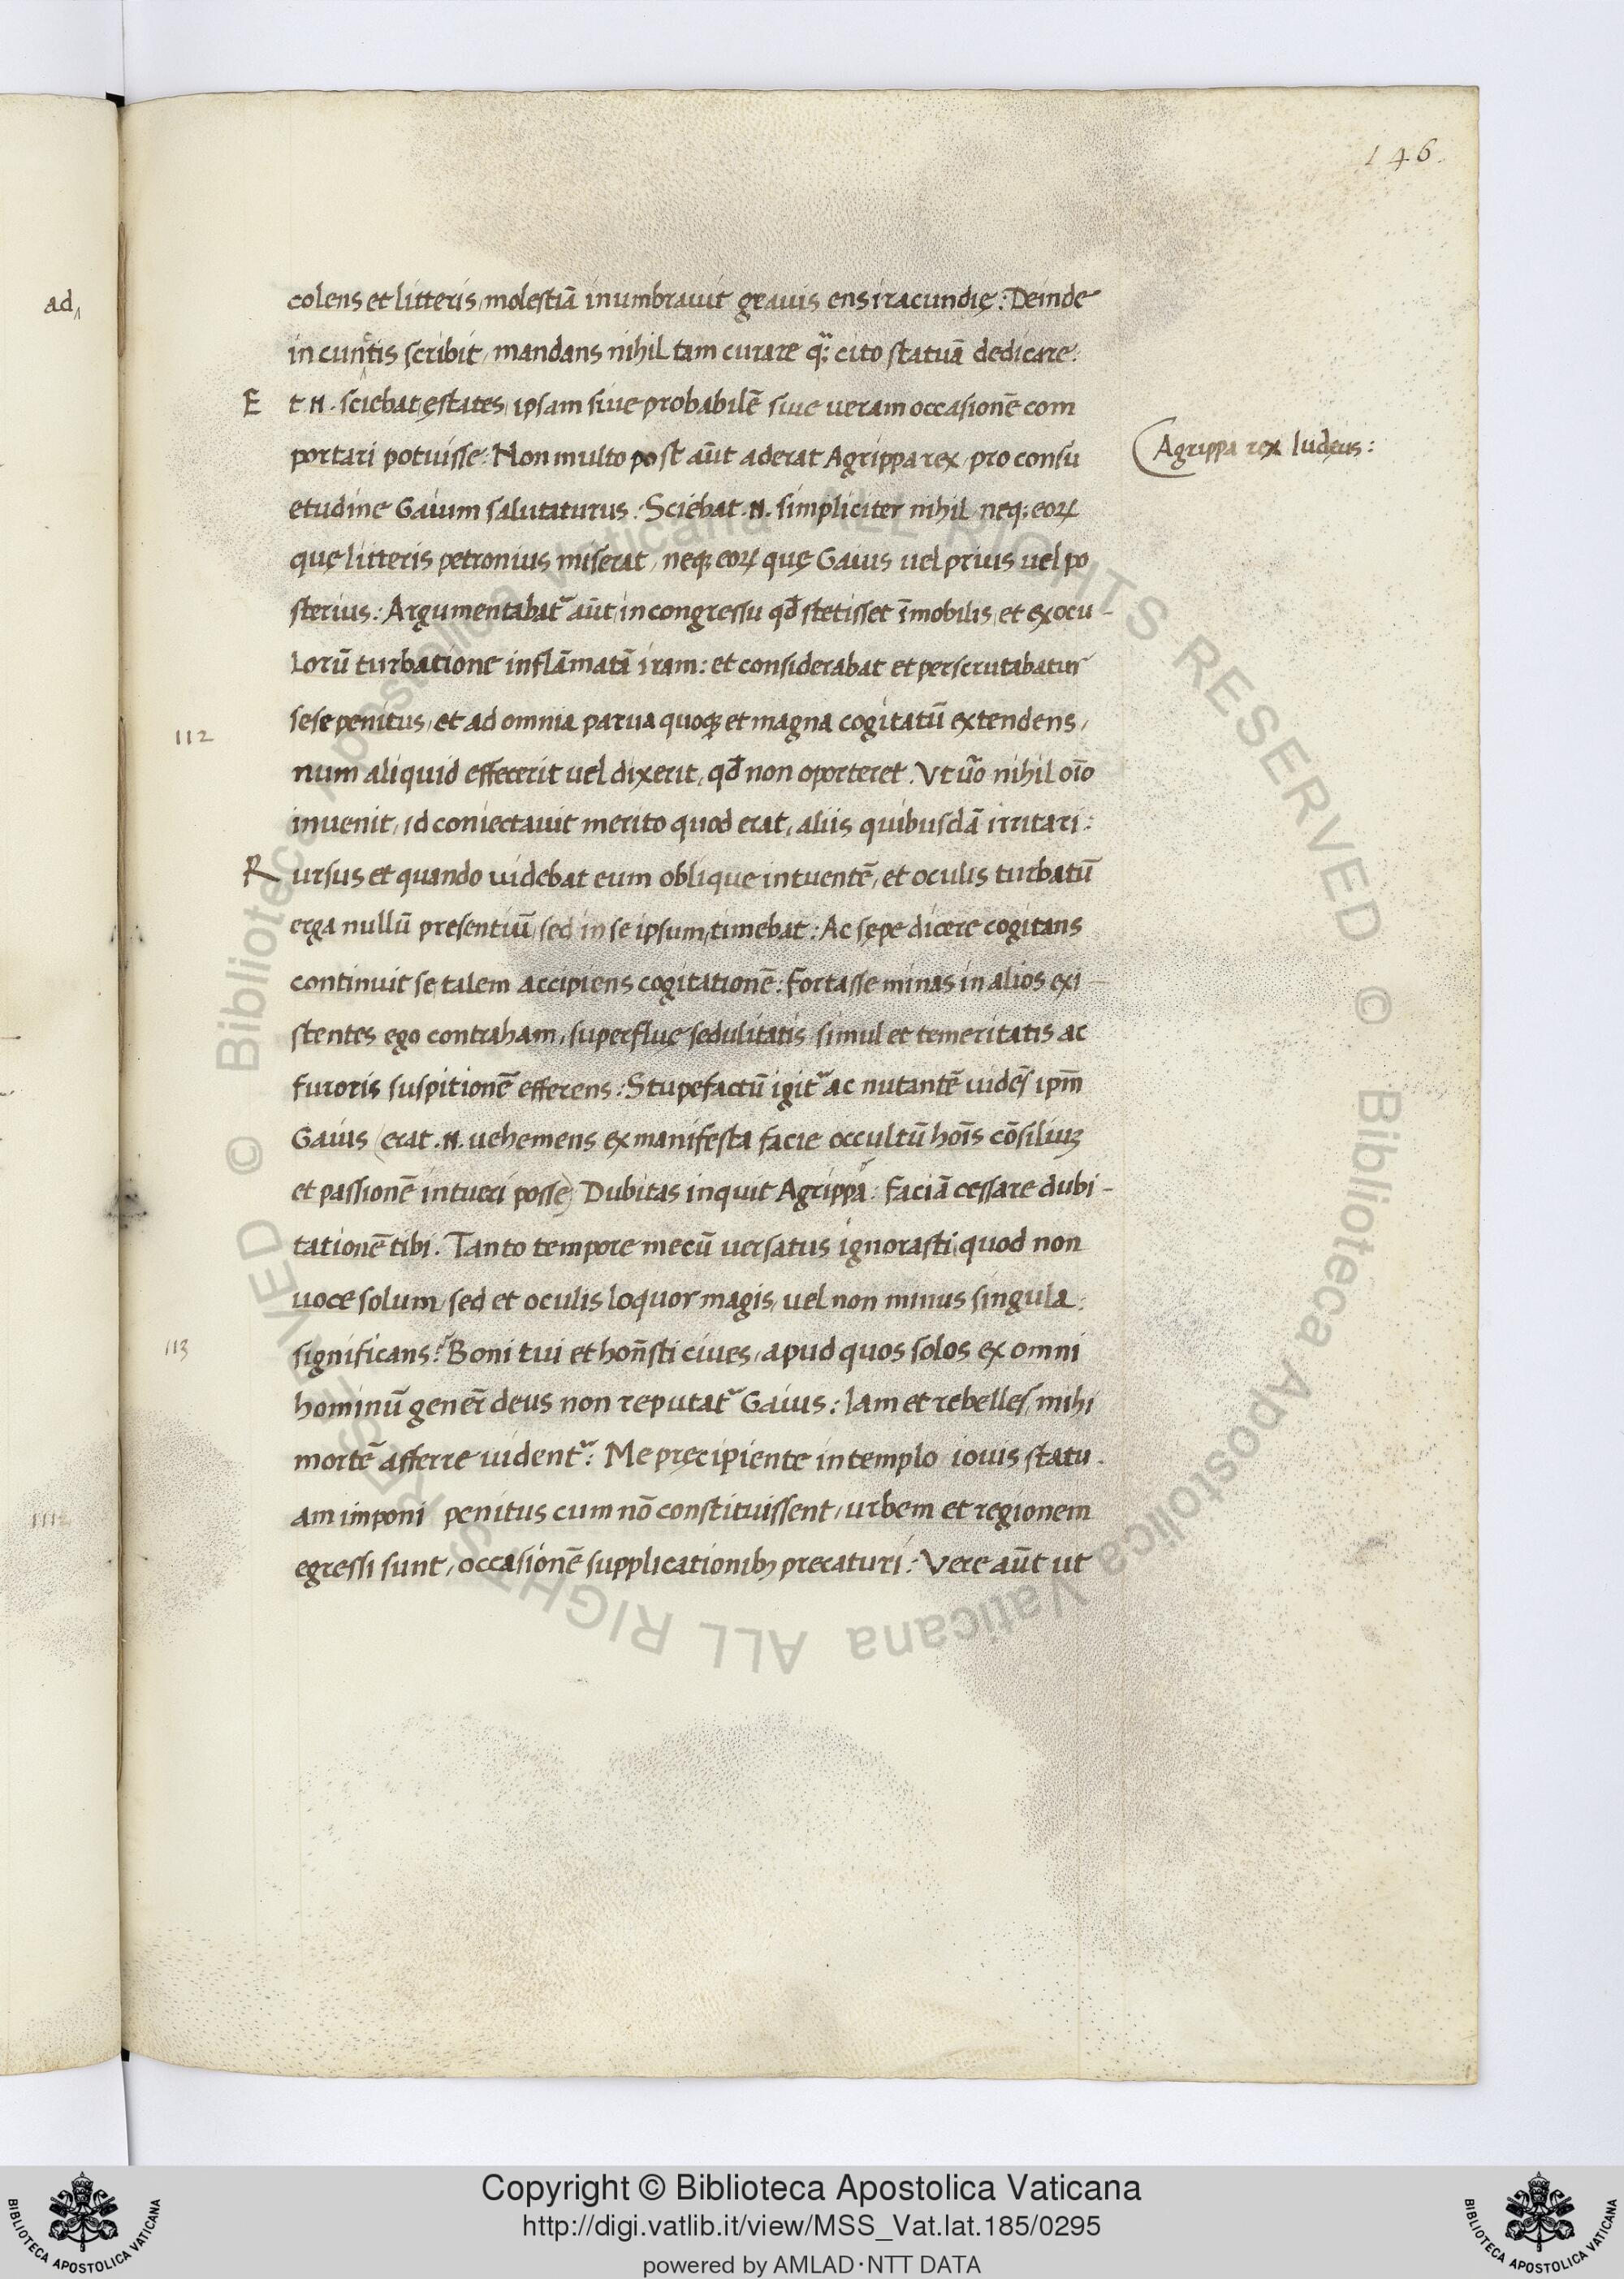 146
ad
colens et litteris, molestiã inumbrauit grauis ens iracundię: Deinde
in cunctis scribit, mandans nihil tam curare q̃; cito statuã dedicare:
Et .N. sciebat, ęstates, ipsam siue probabilẽ siue ueram occasionẽ com
portari potuisse: Non multo post aũt aderat Agrippa rex, pro consu
Agrippa rex Iudęus:
etudine Gaium salutaturus: Sciebat .N. simpliciter nihil, neq; eoꝝ
quę litteris petronius miserat, neq; eoꝝ quę Gaius uel prius uel po
sterius: Argumentabat᷑ aũt, in congressu qđ stetisset ĩmobilis, et ex ocu-
lorũ turbatione inflãmatã iram: et considerabat et perscrutabatur
sese penitus, et ad omnia parua quoq; et magna cogitatũ extendens,
112
num aliquid effecerit uel dixerit, qđ non oporteret. Vt ũo nihil oĩo
inuenit, id coniectauit merito quod erat, aliis quibusdã irritari:
Rursus et quando uidebat eum oblique intuentẽ, et oculis turbatũ
erga nullũ presentiũ, sed in se ipsum, timebat: Ac sępe dicere cogitans
continuit se, talem accipiens cogitationẽ: Fortasse minas in alios exi-
stentes ego contraham, superfluę sedulitatis, simul et temeritatis ac
furoris suspitionẽ efferens: Stupefactũ igit᷑ ac nutantẽ uidẽs ip̃m
Gaius (erat .N. uehemens ex manifesta facie occultũ hoĩs cõsiliuȝ
et passionẽ intueri posse) Dubitas inquit Agrippa: faciã cessare dubi-
tationẽ tibi. Tanto tempore mecũ uersatus ignorasti, quod non
uoce solum, sed et oculis loquor magis, uel non minus singula
significans? Boni tui et hoñsti ciues, apud quos solos ex omni
113
hominũ generẽ deus non reputat᷑ Gaius: Iam et rebelles, mihi
mortẽ afferre uident᷑: Me pręcipiente in templo iouis statu-
am imponi penitus cum nõ constituissent, urbem et regionem
egressi sunt, occasionẽ supplicationibȝ precaturi: Vere aũt ut
Copyright © Biblioteca Apostolica Vaticana
http://digi.vatlib.it/view/MSS_Vat.lat.185/0295
powered by AMLAD·NTT DATA